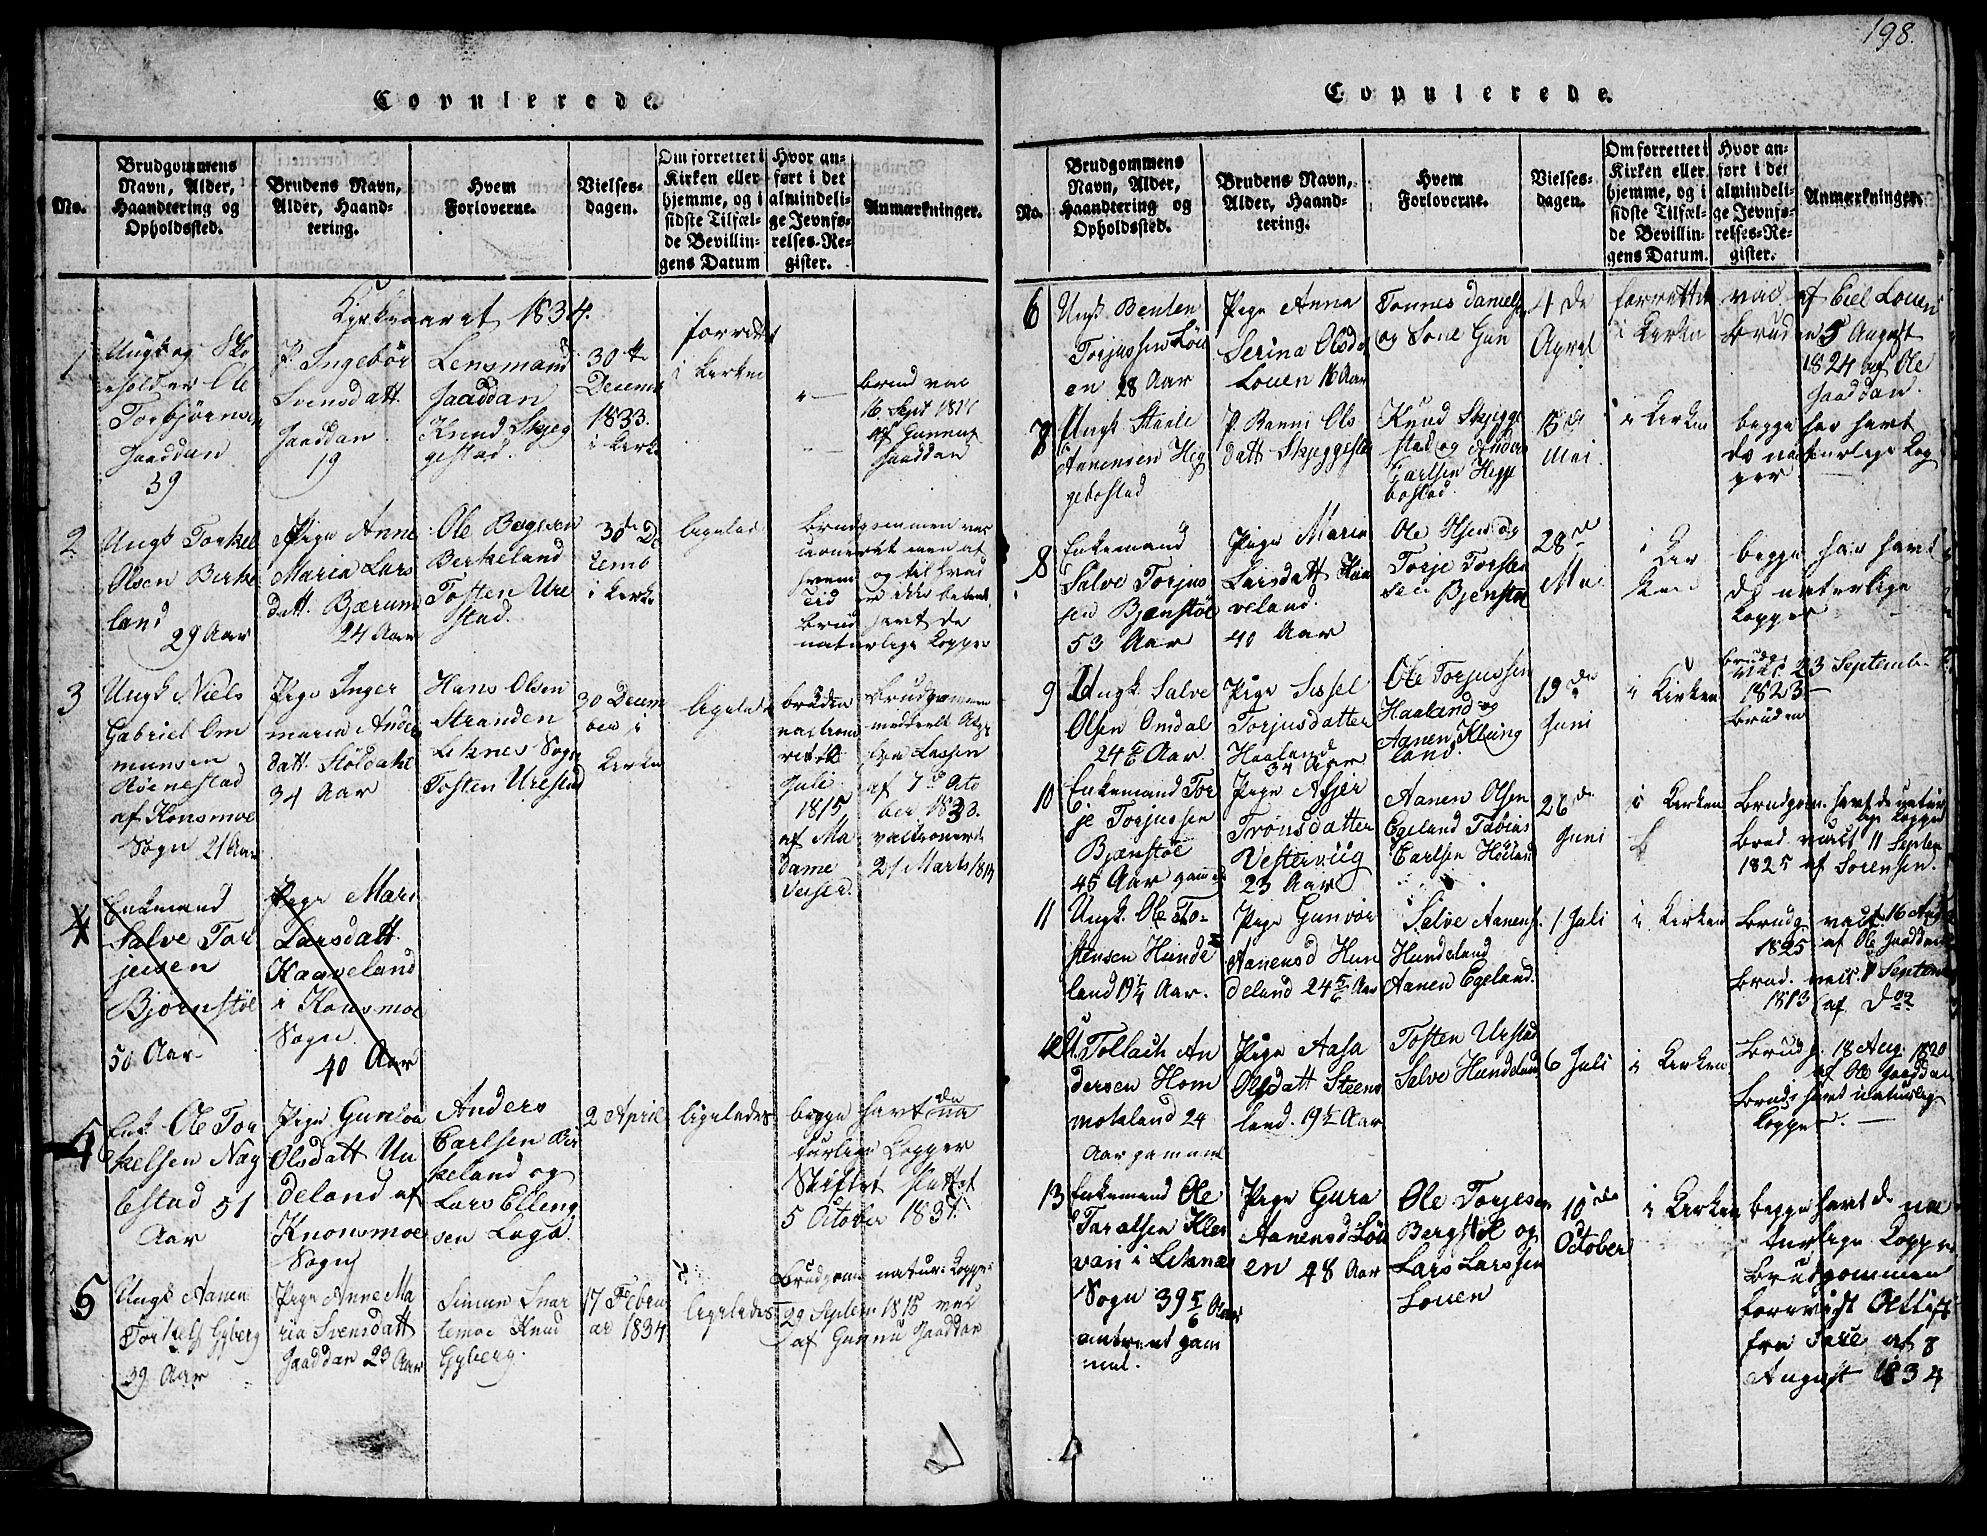 198.
Copulerede.
No.
Brudgommens
Navn, Alder,
Haandtering og
Opholdssted.
Brudens Navn,
Alder, Haand-
tering.
Hvem
Forloverne.
Vielses-
dagen.
Om forrettet i
Kirken eller
hjemme, og i
sidste Tilfæl-
de Bevillin-
gens Datum
Hvor an-
ført i det
almindeli-
ge Jevnfø-
relses-Re-
gister.
Anmærkninger.
Kirkeaaret 1834.
1
Ungk og Sko
eholder Ole
Torbjørnsen
Jaaddan
39
P. Ingebör
Svensdatt.
Jaaddan
19
Lensmand
Jaaddan
Knud Skjeg
gestad.
30te
Decemb
1833.
i Kirke
forrettet
i Kirken
brud vac
16 Sept
af Gunnu
Jaaddan
2
Ungk Torkel
Olsen Birke
land
29 Aar
Pige Anne
Maria Lars
datt. Bærum
24 Aar
Ole Bøgesen
Berkeland
Tosten Ure
stad.
30de De
cemb
i Kirke
ligelad
Brudgommen var
men af
hvem og til hvad
Tid er ikke bekient.
Brud havt de
naturlige Kopper
3
Ungk Niels
Gabriel Om
munsen
Høinestad
af Konsmoe
Sogn 21 Aar
Pige Inger
maria Anders
datt. Stöldahl
34 Aar
Hans Olsen
Stranden
Leknes Sogn
Tosten Urestad
30 Decem
ber i
Kirke
ligelad
bruden
Juli
1815
af Ma
dame
Brudgommen
meddeelt Atte
Lassen
af 7de Octo
ber 1833.
21 Marts 1819
4
Enkemand
Salve Tor
jussen
Bjørnstöl
50 Aar
Pige Mari
Larsdatt
Haaveland
i Konsmoe
Sogn.
40 Aar
4
Enk Ole Tor
kelsen Næg
lestad 51
Aar
Pige Gunloa
Olsdatt Un
deland af
Knonsmoe
Sogn
Anders
Carlsen Bir
keland og
Lars Elling
sen Loga
2 April
ligelades
begge havt de na
turlige Kopper
Skiftet
5 October 1831
5
Ungk Aanen
Torkels Gyberg
39 Aar
Pige Anne Ma
ria Svensdatt
Jaaddan 23 Aar
Simon Snar
temoe Knud
Gyberg.
17 Febru
ar 1834
ligelades
Brudgom natur: Koppe:
29 Septem 1815 ved
af Gunnu Jaaddan
Copulerede.
No.
Brudgommens
Navn, Alder,
Haandtering og
Opholdssted.
Brudens Navn,
Alder, Haand-
tering.
Hvem
Forloverne.
Vielses-
dagen.
Om forrettet i
Kirken eller
hjemme, og i
sidste Tilfæl-
de Bevillin-
gens Datum.
Hvor an-
ført i det
almindeli-
ge Jevnfø-
relses-Re-
gister.
Anmærkninger.
6
Ungk Benten
Torjussen Löu
en 28 Aar
Pige Anna
Serina Olsda
Louen 16 Aar
Tønnes Daniels
og Sone Gun
4 de
April
forrettet
i Kirken
vac af Eiel Louen
Bruden 5 August
1824 af Ole
Jaaddan.
7
Ungk Staale
Aanensen Hig
gebostad
P. Ranni Ols
datt Skjeggestad
Knud Skjegge
stad og Anders
Carlsen Hegg
bostad.
15 de
Mai.
i Kirken
begge har havt
de naturlige Kop
per
8
Enkemand
Salve Torjus
sen Bjørnstöl
53 Aar
Pige Maria
Larsdatt Haa
veland.
40 Aar
Ole Olsen og
Torje Torsten
sen Bjenstöl
28de
Mai
i
Kir
ken
begge har havt
de naturlige
Kopper
9
Ungk. Salve
Olsen Omdal
24 Aar
Pige Sissel
Torjusdatter
Haaland
34 Aar
Ole Torjussen
Haaland og
Aanen Kleing
land.
19 de
Juni
i Kirken
brudg.
vac. 23 Septemb
1823
Bruden
10
Enkemand Tor
je Torjussen
Bjænstöe
45 Aar gamme
Pige Asjer
Trönsdatter
Vesterviig
23 Aar
Aanen Olsen
Egeland Tobias
Carlsen Höiland
26 de
Juni
i Kirken
Brudgom. havt de natur
lige Kopper
Brud vact 11 Septem
1825 af Sørensen.
11
Ungk. Ole To-
stensen Hunde
land 19 1/4 Aar.
Pige Gunvör
Aanensd Hun
deland 24 5/6 Aar
Salve Aanens
Hundeland
Aanen Egeland.
1 Juli
i Kirken
Brudg. vact. 16 Aug
1825 af Ole Jaaddan
Brud. vact. 1 Septem
1813 af Do
12
U. Tollach An
dersen Hom
moteland 24
Aar gammel
Pige Aasa
Olsdatt Steens
land. 19 1/2 Aar
Tosten Urstad
Salve Hundeland
6 Juli
i Kirken
Brudg. 18 Aug. 1820
af Ole Jaaddan
Brud: havt naturlig
Kopper.
13
Enkemand Ole
Taralsen Kler
vari i Leknæs
Sogn 39 5/6 Aar
gam
mel.
Pige Gura
Aanensd Löu
en 48 Aar
Ole Torjesen
Bergstöl og
Lars Larssen
Louen
10 de
October
i Kirken
begge havt de na
turlige Kopper
Brudgommen
forevist Attest
fra Sore af 8
August 1834